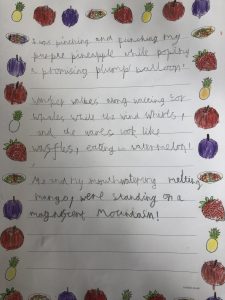 I was pinching and punching my
pineapple while popping
a promising plump balloon!
walking along waiting for
whales while the wind whirls,
and the waves look like
waffles, eating a watermelon!
Me and my mouthwatering melting
mango, were standing on a
magnificent Mountain!